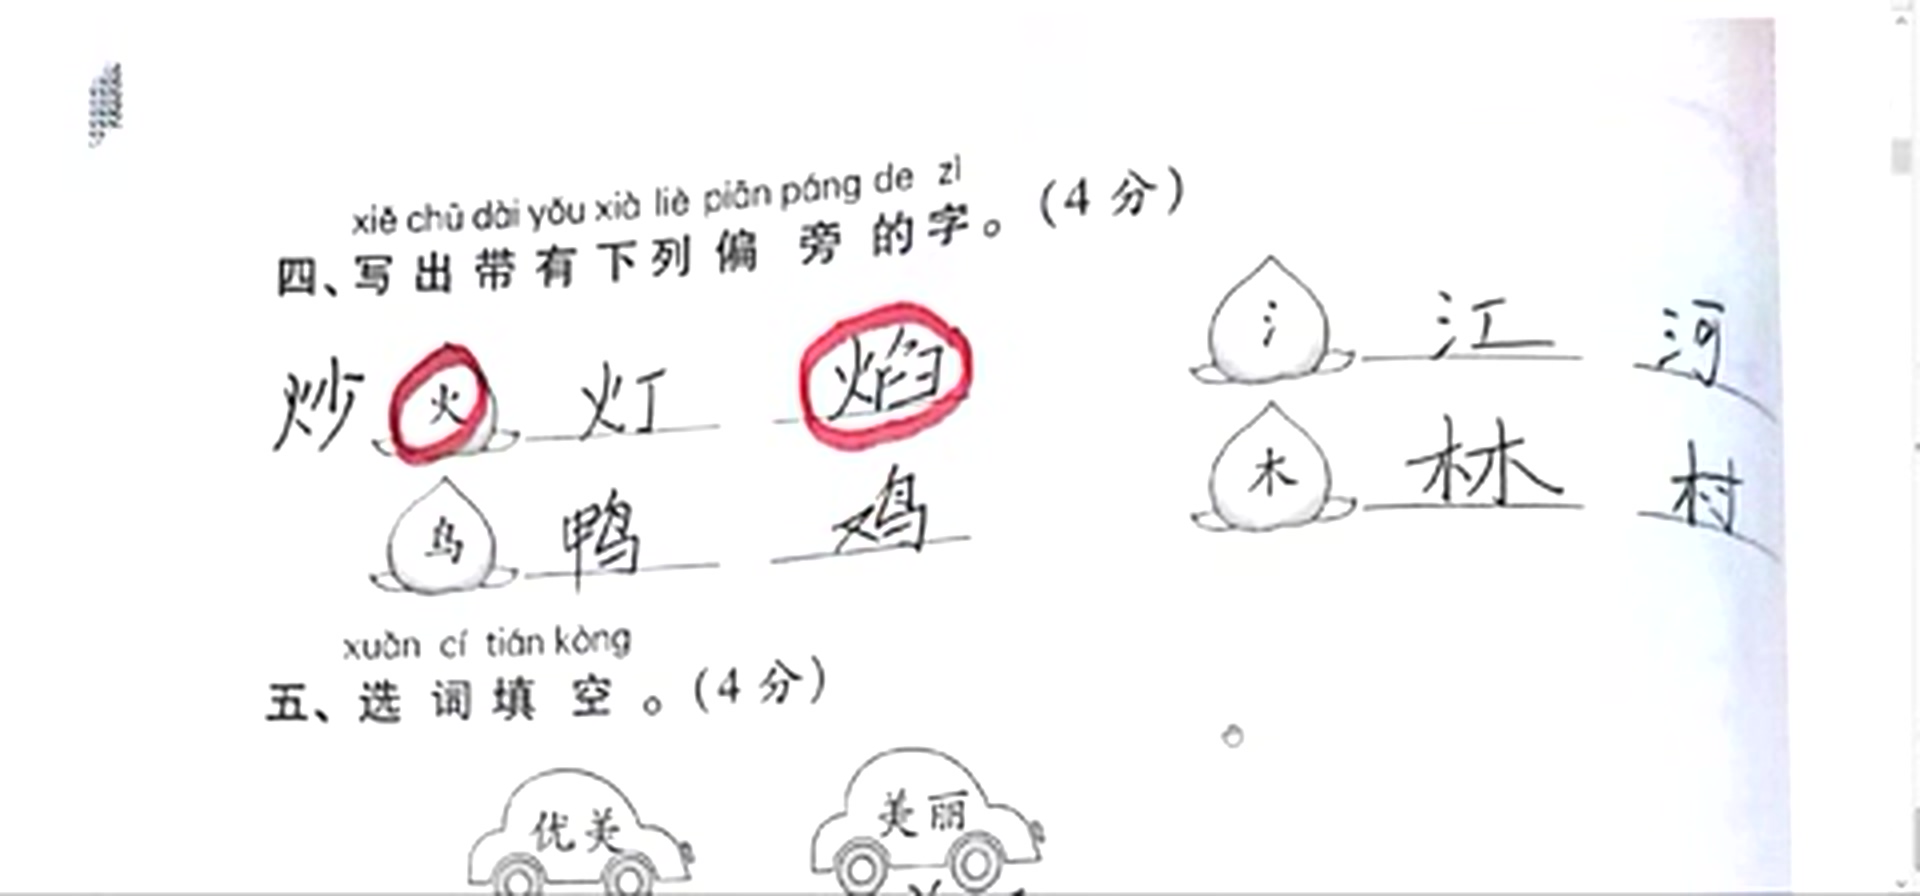 xiě chū dài yǒu xià liè piān páng de zì
四、写出带有下列偏旁的字。(4分)
炒 火 灯 焰 氵 江 河
鸟 鸭 鸡 木 林 村
xuǎn cí tián kòng
五、选词填空。(4分)
优美 美丽